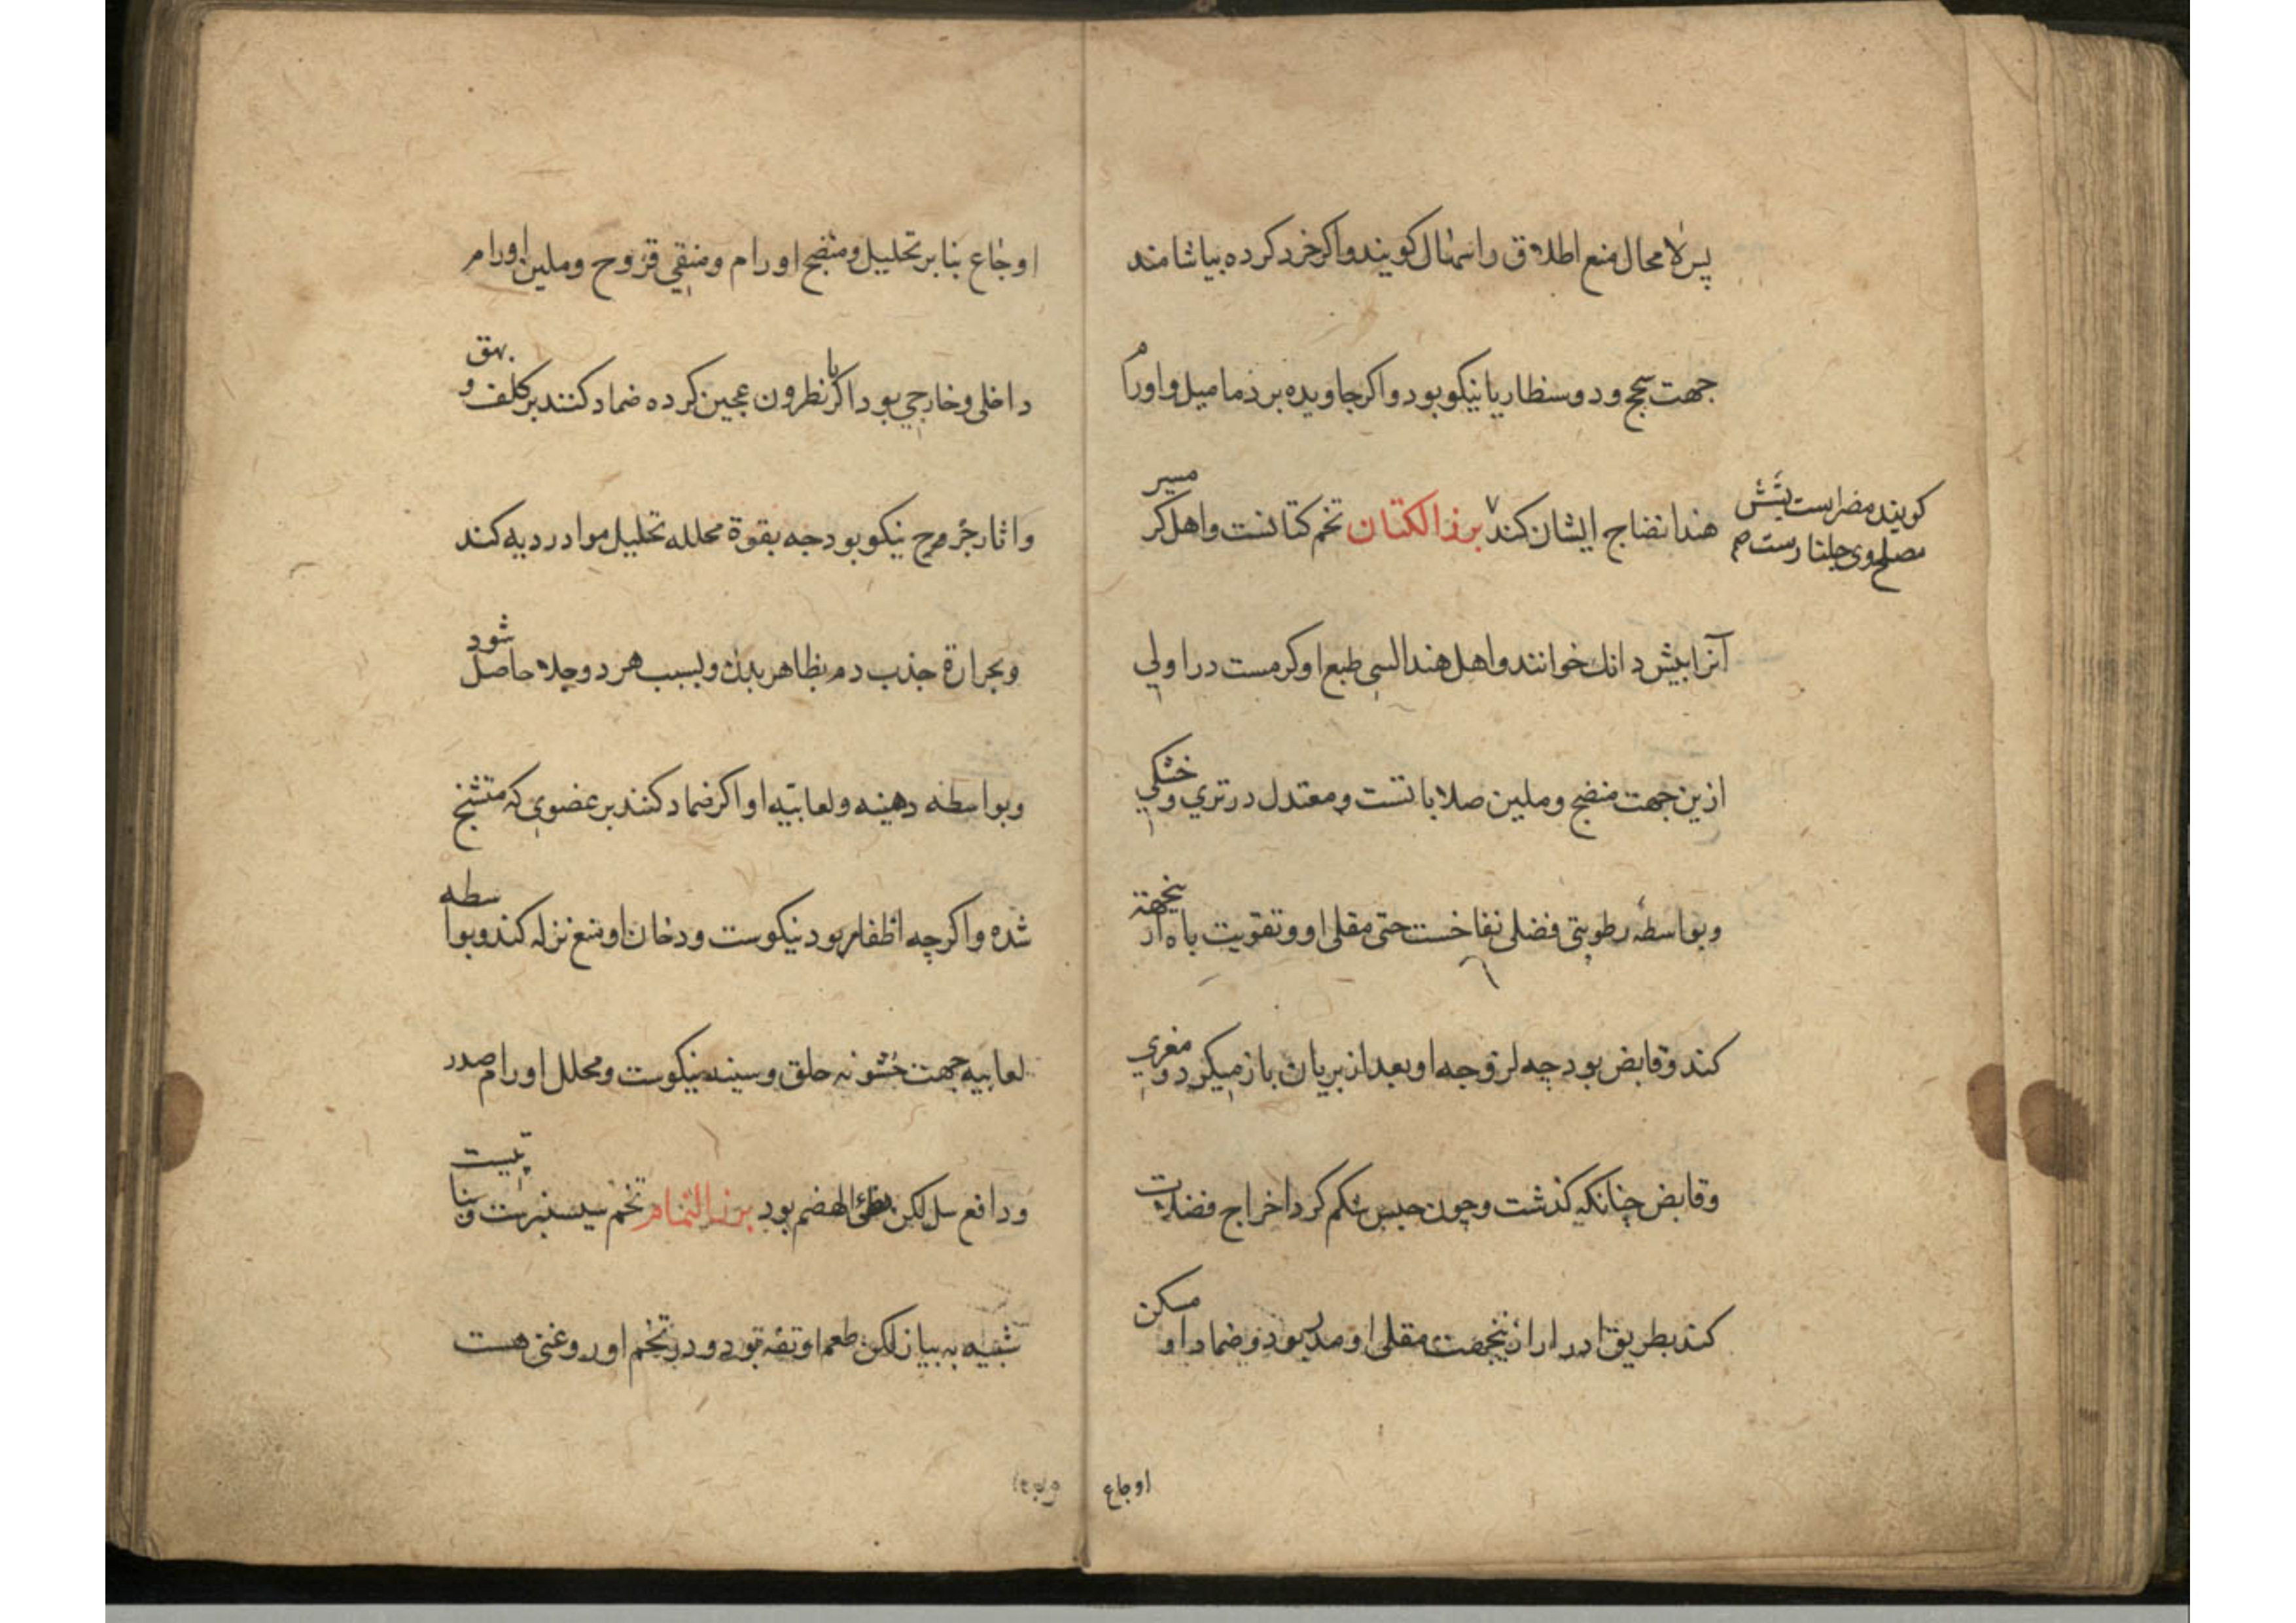 پس لا محال منع اطلاق را سهال کویند واکر خرد کرده بیاشامند
جهت سحج ودوسنطاریا نیکو بود واکر جاویده بر دمامیل واورام
هند انضاج ایشان کند بزر الکتان تخم کتانست واهل کرمسیر
کویند مضر است
مصلح وی جلنارست
آنرا بیش دانک خوانند واهل هند السی طبع او کرمست در اولی
ازین جهت منضج وملین صلاباتست ومعتدل در تری وخشکی
وبواسطه رطوبتی فضلی نفاخست حتی مقلی او وتقویت باه ازینجهة
کند وقابض بود چه لزوجه او بعد از بریان باز میکردد ومغری
وقابض چنانکه کذشت وچون حبس شکم کرد اخراج فضلات
کند بطریق ادرار ازینجهت مقلی او مدر بود وضماد او مسکن
اوجاع
اوجاع بنا بر تحلیل ومنضج اورام ومنقی قروح وملین اورام
داخلی وخارجی بود اکر با نطرون عجین کرده ضماد کنند بر کلف وبهق
واثار جروح نیکو بود چه بقوة محلله تحلیل مواد ردیه کند
وبحرارة جذب دم بظاهر بدن وبسبب هر دو جلا حاصل شود
وبواسطه دهنیه ولعابیه او اکر ضماد کنند بر عضوی که متشنج
شده واکرچه اظفار بود نیکوست ودخان او منع نزله کند وبواسطه
لعابیه جهت خشونه حلق وسینه نیکوست ومحلل اورام صدر
ودافع سل لکن بطئ الهضم بود بزر النمام تخم سیسنبرست ونباتیست
شبیه به بیاز لکن طعم او تفه بود ودر تخم او روغنی هست